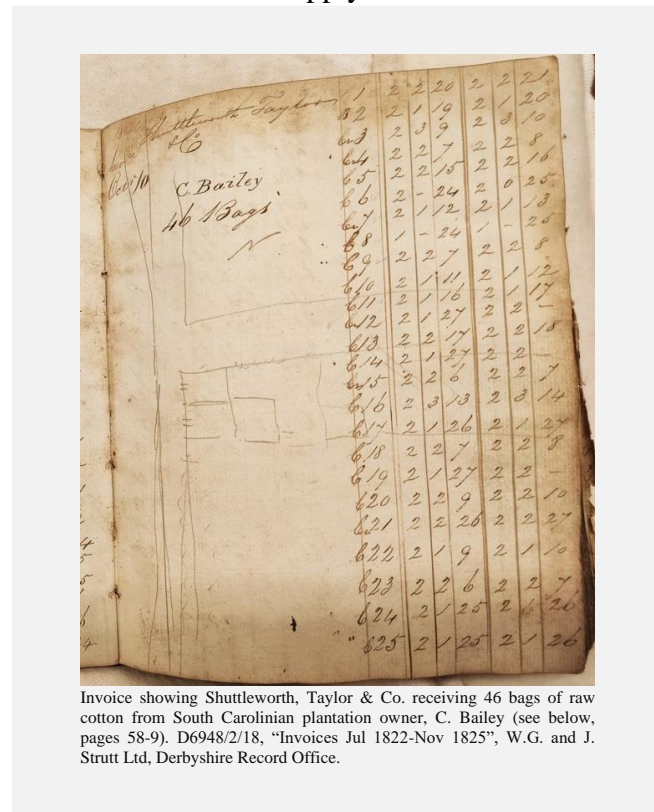 Shuttleworth Taylor
& Co
Oct 10
C. Bailey
46 Bags
1 2 2 20 2 2 21
2 2 1 19 2 1 20
3 2 3 9 2 3 10
4 2 2 7 2 2 8
5 2 2 15 2 2 16
6 2 - 24 2 0 25
7 2 1 12 2 1 13
8 1 - 24 1 - 25
9 2 2 7 2 2 8
10 2 1 11 2 1 12
11 2 1 16 2 1 17
12 2 1 27 2 2 -
13 2 2 17 2 2 18
14 2 1 27 2 2 -
15 2 2 6 2 2 7
16 2 3 13 2 3 14
17 2 1 26 2 1 27
18 2 2 7 2 2 8
19 2 1 27 2 2 -
20 2 2 9 2 2 10
21 2 2 26 2 2 27
22 2 1 9 2 1 10
23 2 2 6 2 2 7
24 2 1 25 2 1 26
25 2 1 25 2 1 26
Invoice showing Shuttleworth, Taylor & Co. receiving 46 bags of raw
cotton from South Carolinian plantation owner, C. Bailey (see below,
pages 58-9). D6948/2/18, “Invoices Jul 1822-Nov 1825”, W.G. and J.
Strutt Ltd, Derbyshire Record Office.